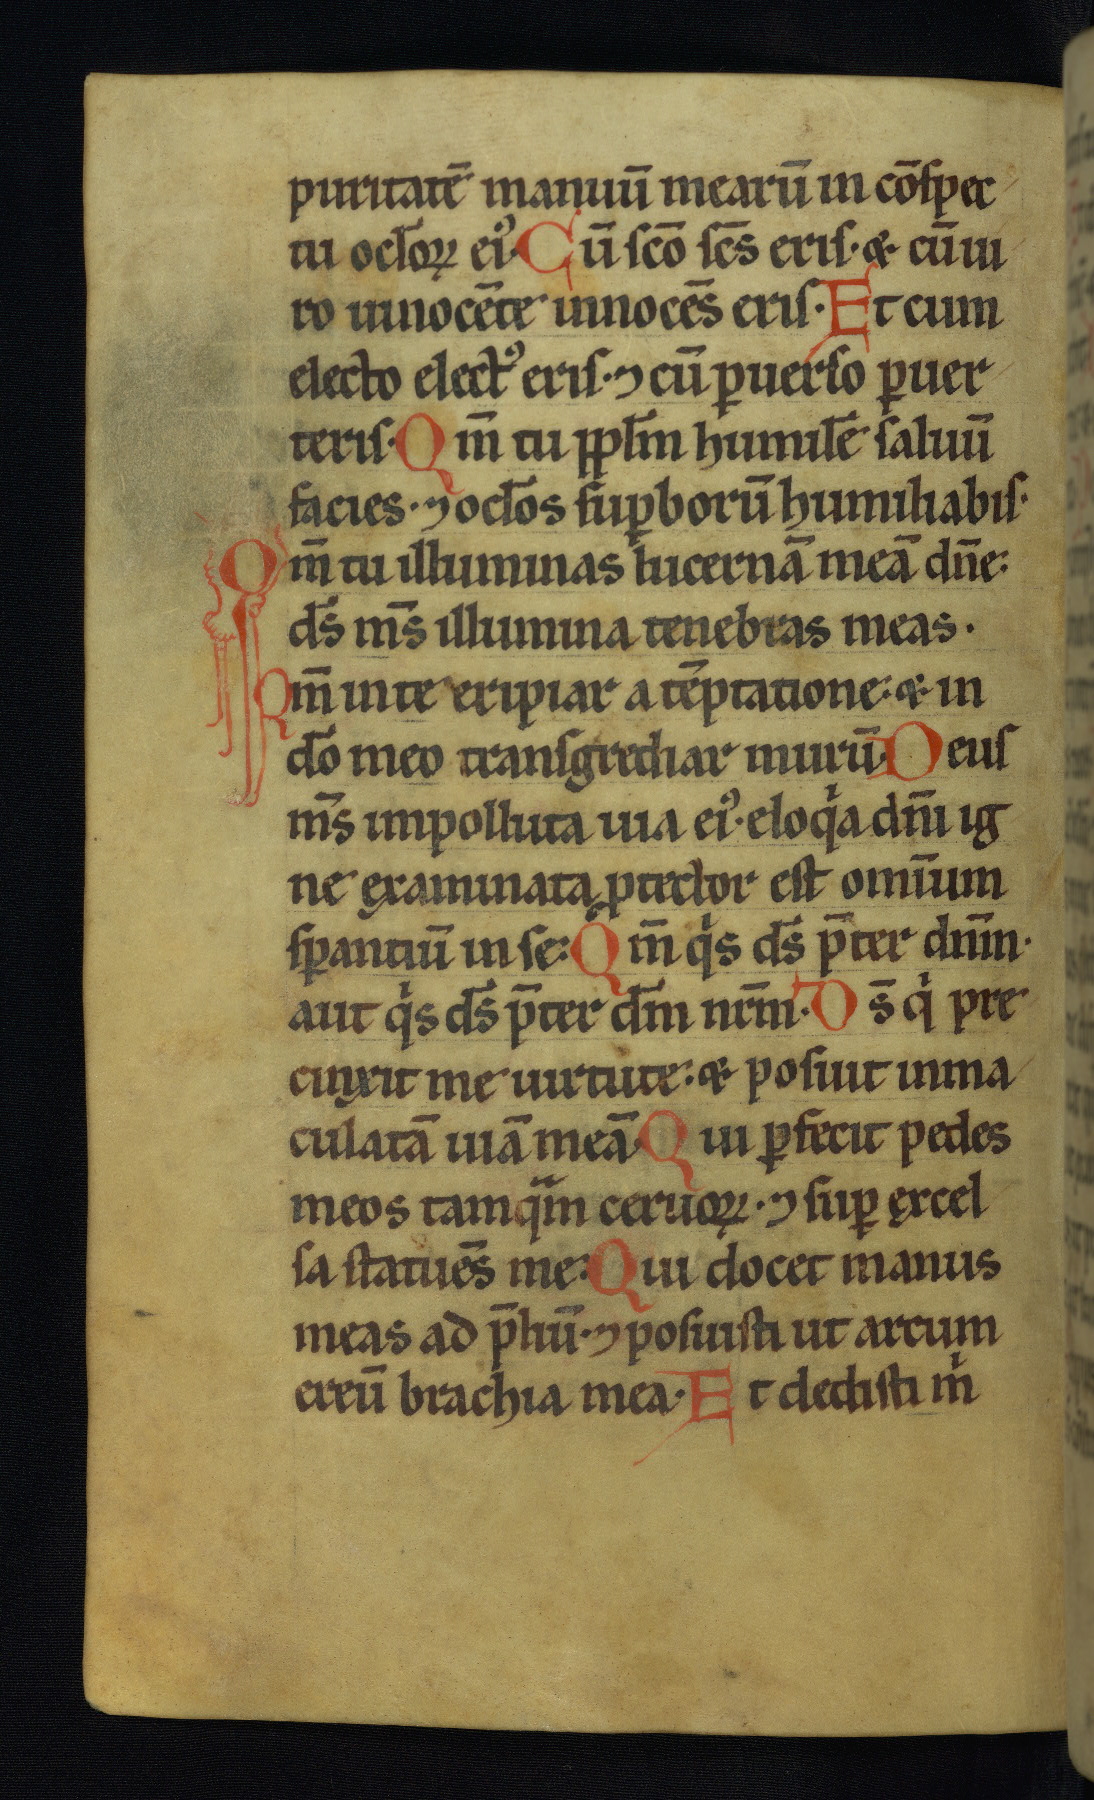 puritatē manuū mearū in cōspec
tu oclo̅ꝝ eiꝰ. Cū sc̄o sc̄s eris. & cū ui
ro innocēte innocēs eris. Et cum
electo electꝰ eris. ⁊ cū ꝑuerso ꝑuer
teris. Qm̄ tu ppl̄m humilē saluū
facies. ⁊ ocl̄os suꝑborū humiliabis.
Qm̄ tu illuminas lucernā meā dn̄e:
ds̄ ms̄ illumina tenebras meas.
Qm̄ in te eripiar a tēptatione: & in
do̅ meo transgrediar murū. Deus
ms̄ impolluta uia eiꝰ. eloqͥa dn̄i ig
ne examinata ꝓtector est omīum
sꝑantiū in se: Qm̄ qͥs ds̄ p̄ter dn̄m.
aut qͥs ds̄ p̄ter dm̄ nr̄m. Ds̄ qͥ pre
cinxit me uirtute: & posuit inma
culatā uiā meā. Qui ꝑfecit pedes
meos tamqᷓm ceruoꝝ. ⁊ suꝑ excel
sa statuēs me: Qui docet manus
meas ad p̄liū. ⁊ posuisti ut arcum
ereū brachia mea. Et dedisti mͥ